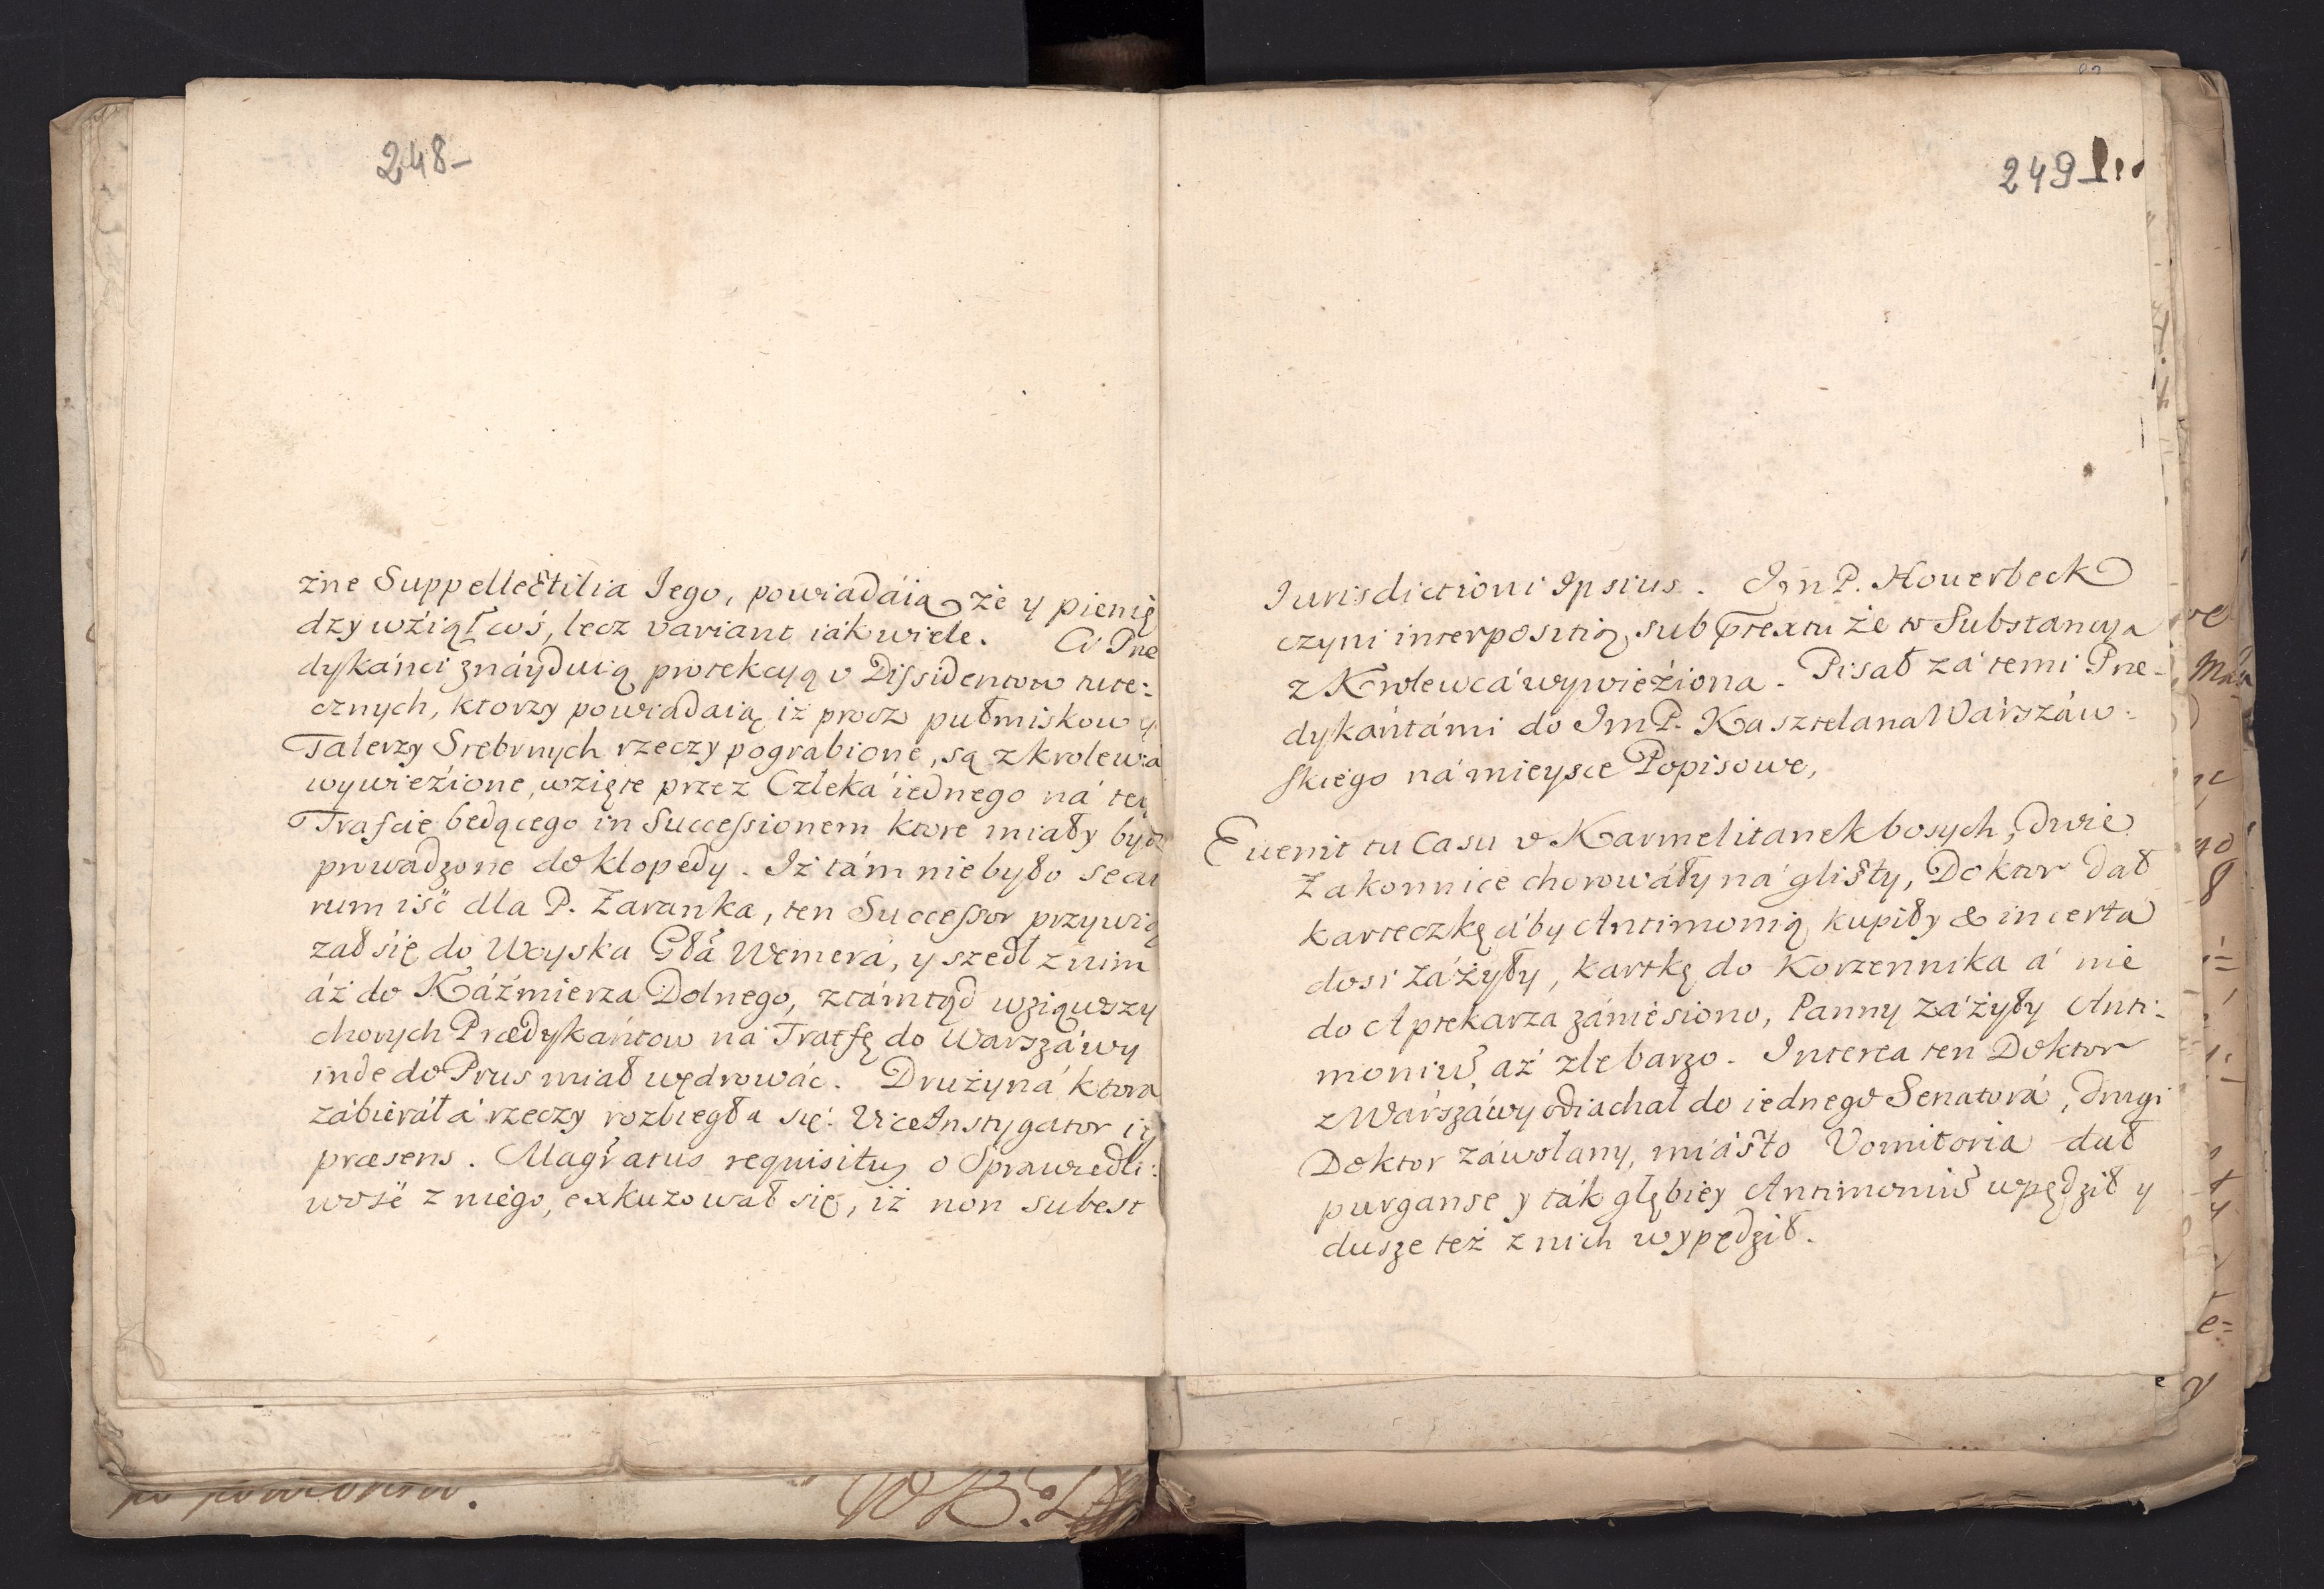 248-
żne Suppellectilia Jego, powiadáią że y pienię
dzy wźiął coś, lecz variant iák wiele. Ci Præ
dykánci znáyduią protekcyą v Dissidentow tute:
cznych, ktorzy powiadaią iż procz pułmiskow y
Talerzy Srebrnych rzeczy pograbione, są z krolewca
wywieźione, wzięte przez Człeká iednego ná tey
Trafcie będącego in Successionem ktore miały bydz
prowadzone do klopedy. Iż tám nie było secu
rum iść dla P. Zaranka, ten Successor przywią
zał się do Woyska Gła Wemerá, y szedł z nim
áż do Káźmierza Dolnego, ztámtąd wziąwszy
chorych Prædykántow ná Tratfę do Warszáwy
inde do Prus miał wędrowáć. Drużyná ktora
zábieráłá rzeczy rozbiegła się. ViceInstygator iest
præsens. Magratus requisitus o Sprawiedli:
wość z niego, exkuzował się, iż non subest
249
Jurisdictioni Ipsius. Im P. Houerbeck
czyni interpositią, sub prætextu że to Substancya
z Krolewcá wywieźiona. Pisał zá temi Præ-
dykántámi do Im P. Kasztelana Wárszáw:
skiego ná mieysce Popisowe,
Euenit tu Casu v Karmelitanek bosych, dwie
Zakonnice chorowáły ná glisty, Doktor dał
karteczkę áby Antimonią kupiły & incerta
dosi záżyły, kartkę do Korzennika á nie
do Aptekarza zániesiono, Panny záżyły Anti:
moniū aż źle barzo. Interea ten Doktor
z Wárszáwy odiachał do iednego Senatorá, drugi
Doktor záwołany, miásto Vomitoria dał
purganse y ták głębiey Antimoniū wpędził y
dusze też z nich wypędził.